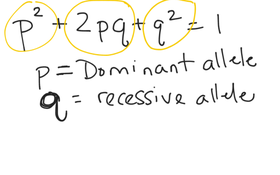 p² + 2pq + q² = 1
p = Dominant allele
q = recessive allele